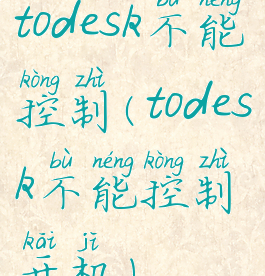 bù néng
todesk不能
kòng zhì
控制(todes
bù néng kòng zhì
k不能控制
kāi jī
开机)